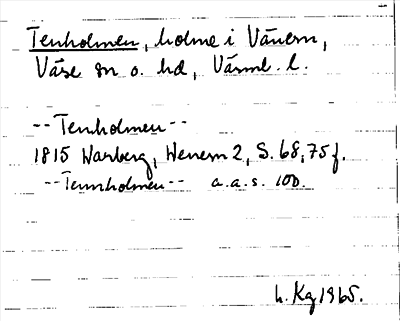 Tenholmen, holme i Vänern,
Väse sn o. hd, Värml. l.
--Tenholmen--
1815 Warberg, Wenern 2, S. 68, 75 f.
--Tennholmen-- a.a.s. 100.
L. Kg 1965.